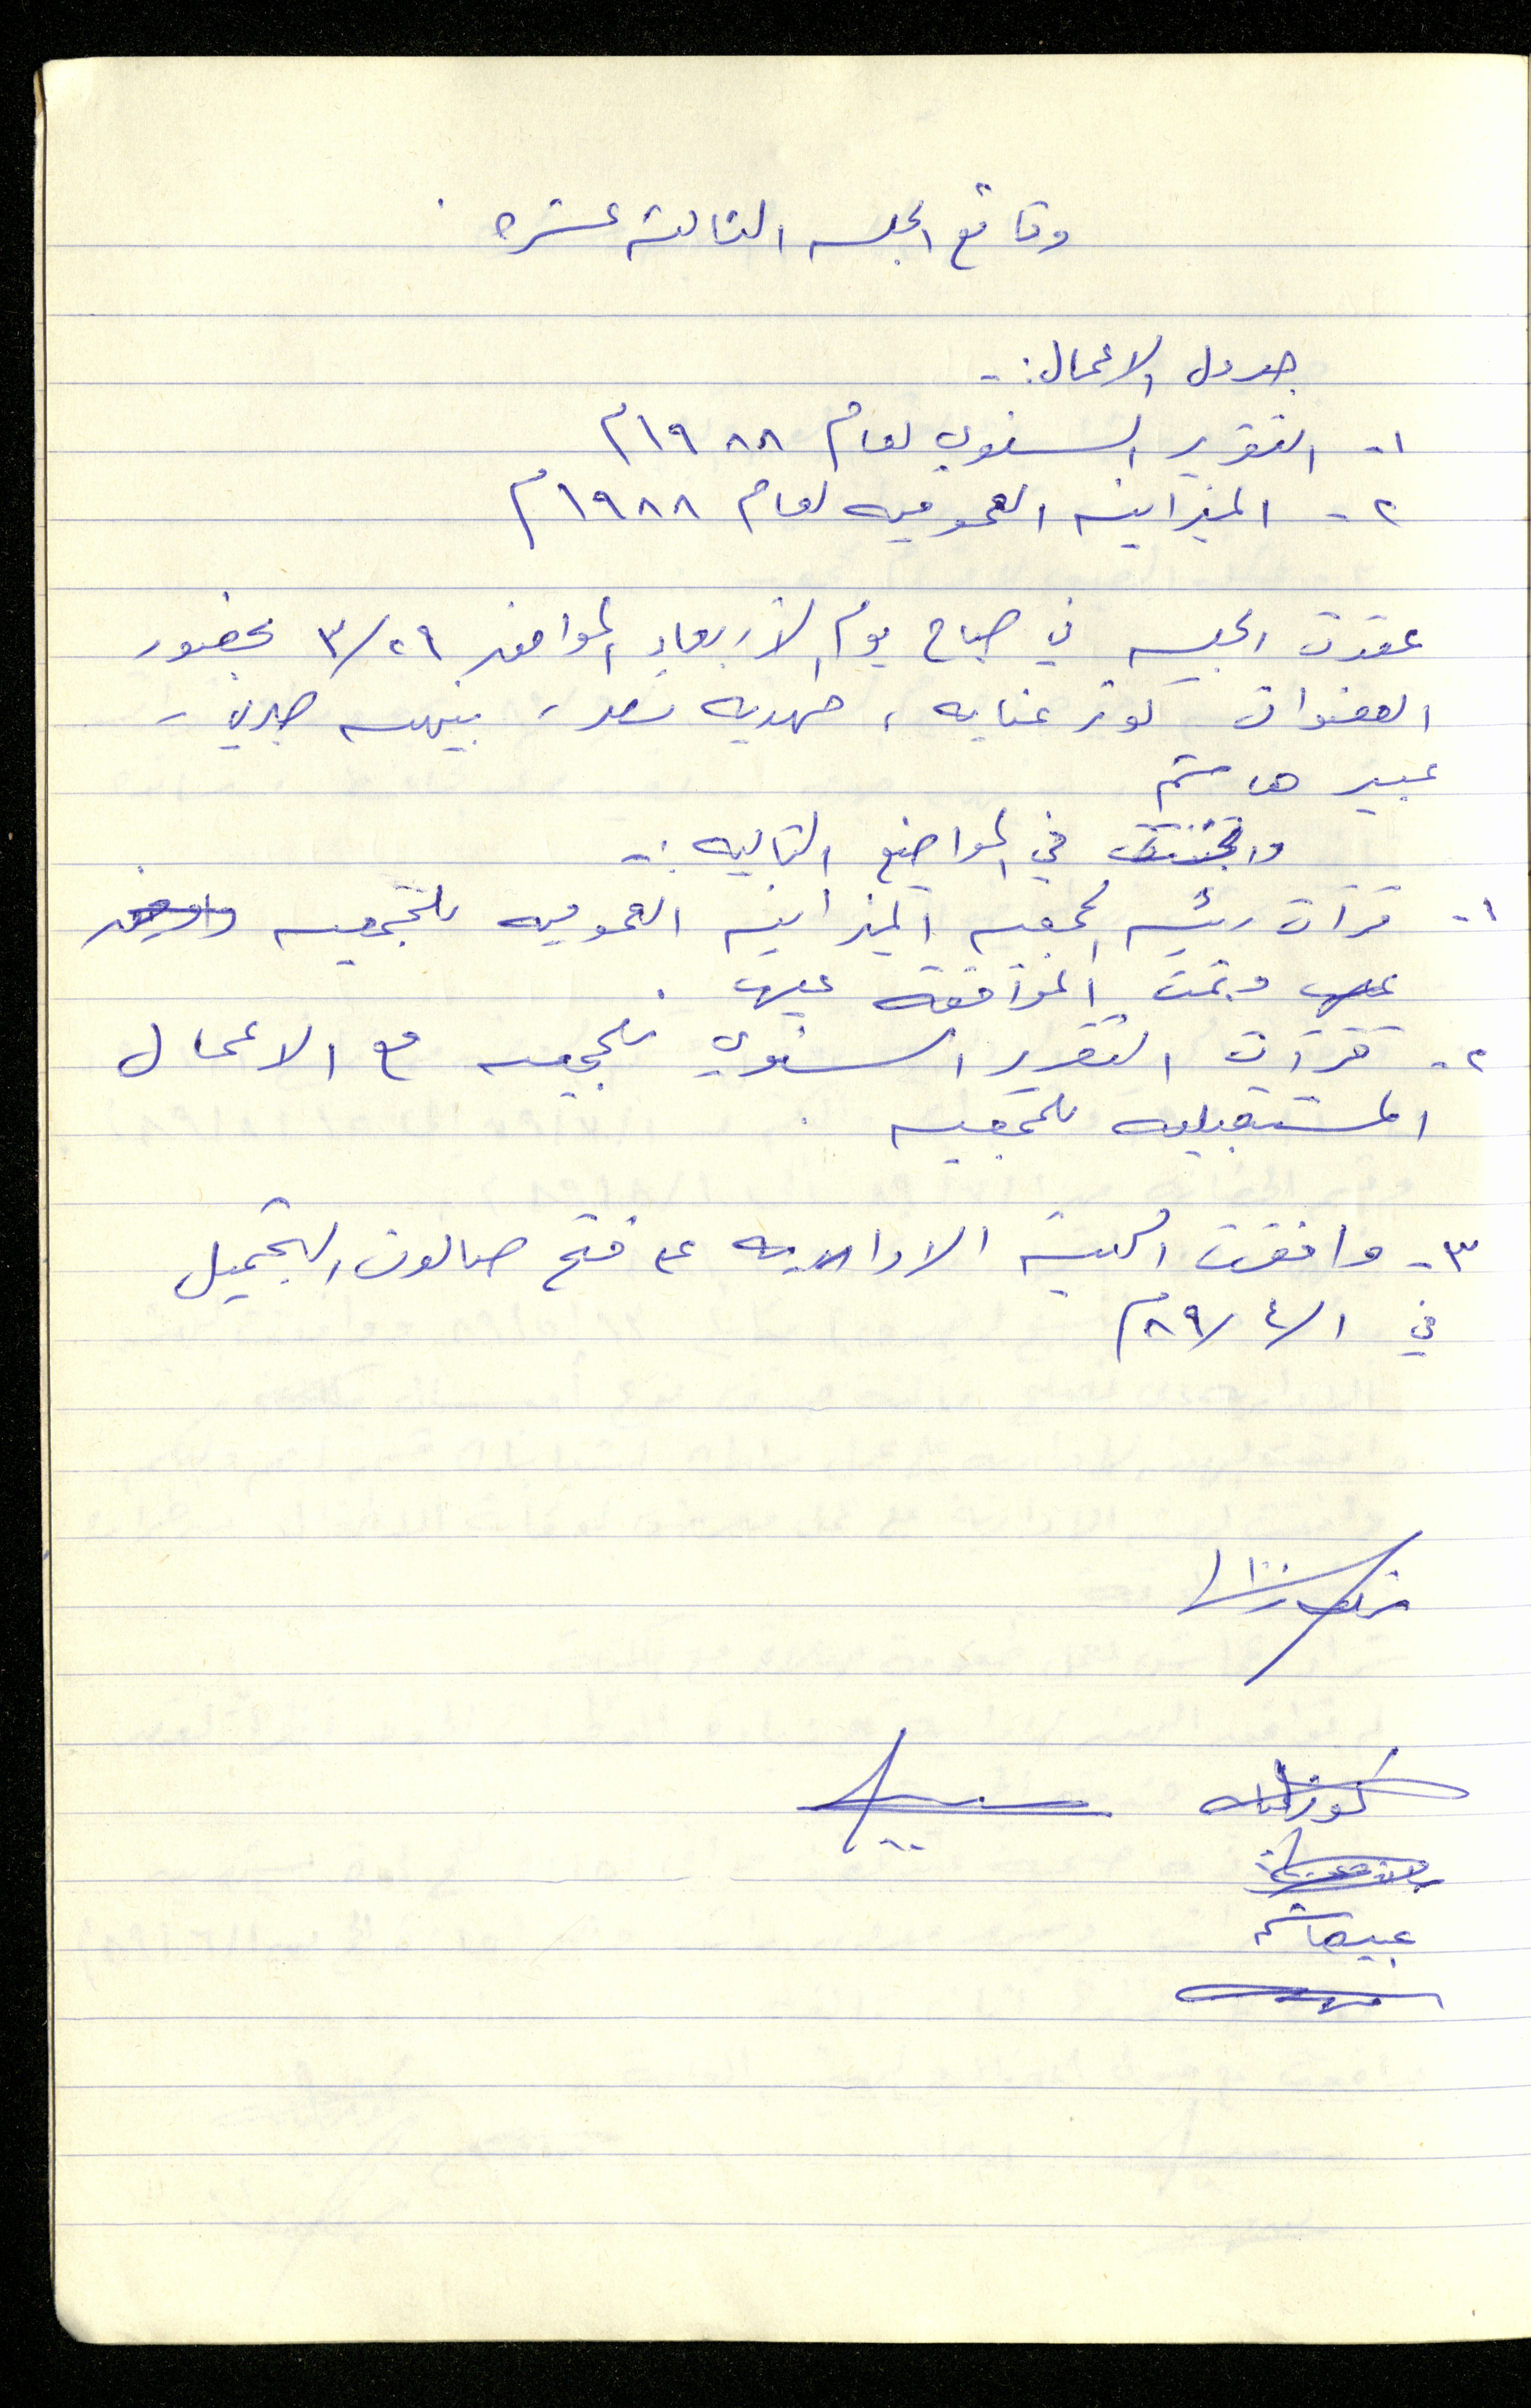 وقائع الجلسه الثالثه عشره .
جدول الاعمال :-
١- التقرير السنوي لعام ١٩٨٨م
٢- الميزانيه العموميه لعام ١٩٨٨م
عقدت الجلسه في صباح يوم الأربعاء الموافق ٣/٢٩ بحضور
العضوات كوثر عنايه ، مهديه نصر ، بنيهه صبري -
عبير هاشم
في المواضيع التاليه :-
١- قرأت رئيسه الجمعيه الميزانيه العموميه للجمعيه
وتمت الموافقة عليها .
٢- قرأت التقرير السنوي للجمعيه مع الاعمال
المستقبليه للجمعيه .
٣- وافقت الهيئه الاداريه على فتح صالون التجميل
في ٨٩/٤/١م
عبير هاشم